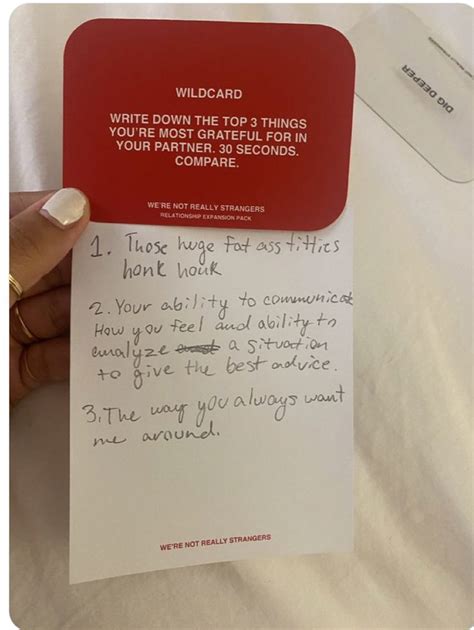 WILDCARD
WRITE DOWN THE TOP 3 THINGS
YOU'RE MOST GRATEFUL FOR IN
YOUR PARTNER. 30 SECONDS.
COMPARE.
WE'RE NOT REALLY STRANGERS
RELATIONSHIP EXPANSION PACK
DIG DEEPER
1. Those huge fat ass titties
honk honk
2. Your ability to communicate
How you feel and ability to
analyze a situation
to give the best advice.
3. The way you always want
me around.
WE'RE NOT REALLY STRANGERS